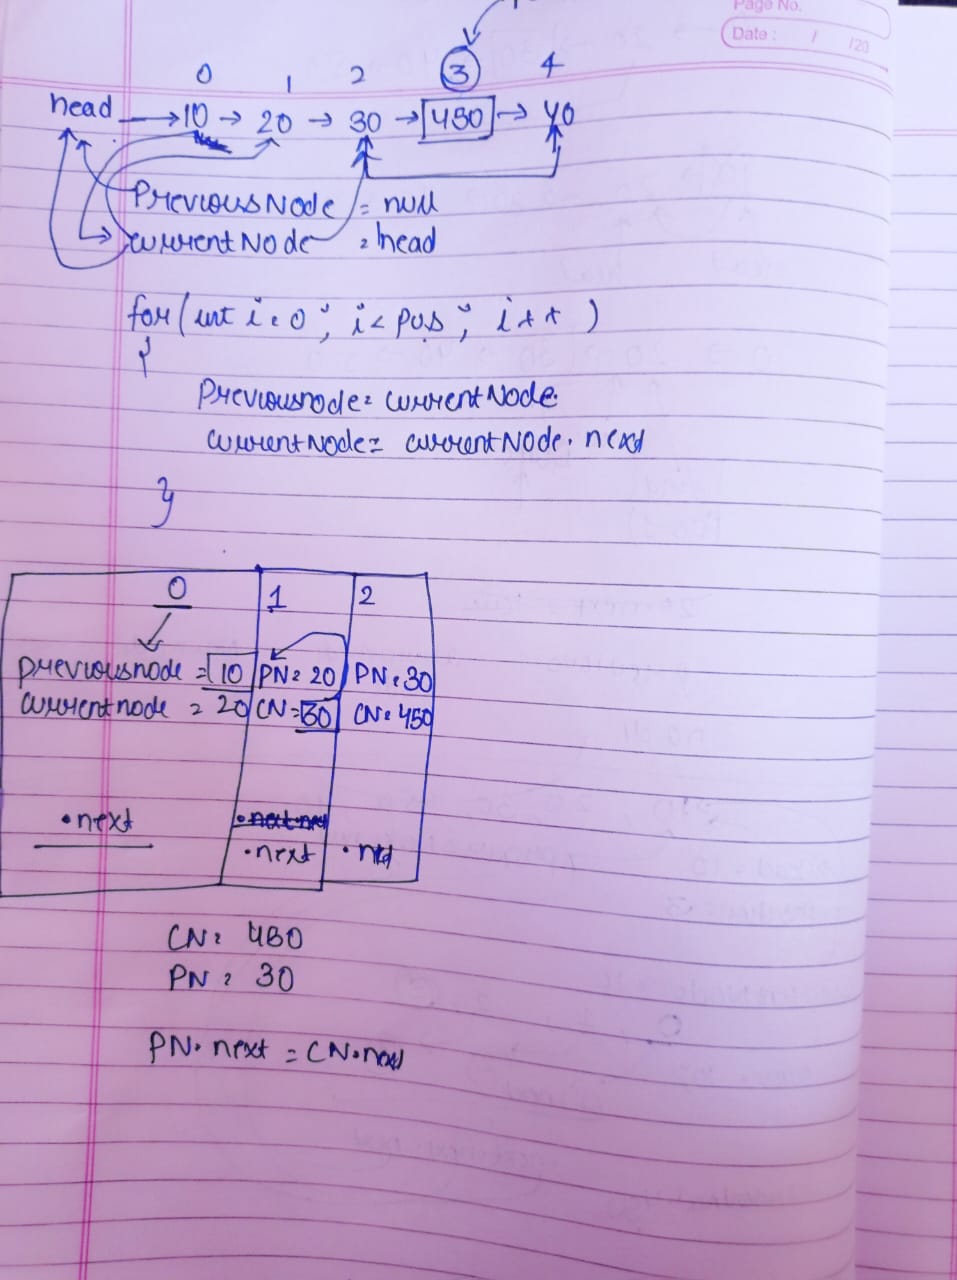 Page No.
Date : / /20
0 1 2 3 4
head → 10 → 20 → 30 → 450 → 40
PreviousNode = null
currentNode = head
for(int i=0; i<pos; i++)
{
Previousnode= currentNode.
currentNode= currentNode.next
}
0 1 2
previousnode = 10 PN= 20 PN=30
currentnode = 20 CN=30 CN=450
.next
.next .next
CN= 450
PN = 30
PN.next = CN.next